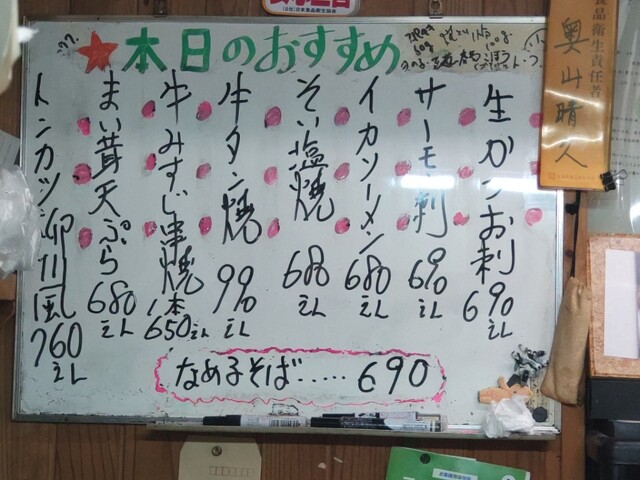 本日のおすすめ
生かつお刺 690エン
サーモン刺 690エン
イカソーメン 680エン
そい塩焼 680エン
牛タン焼 990エン
牛みすじ串焼 1本650エン
まい茸天ぷら 680エン
トンカツ柳川風 760エン
なめこそば.....690
食品衛生責任者
奥山晴久